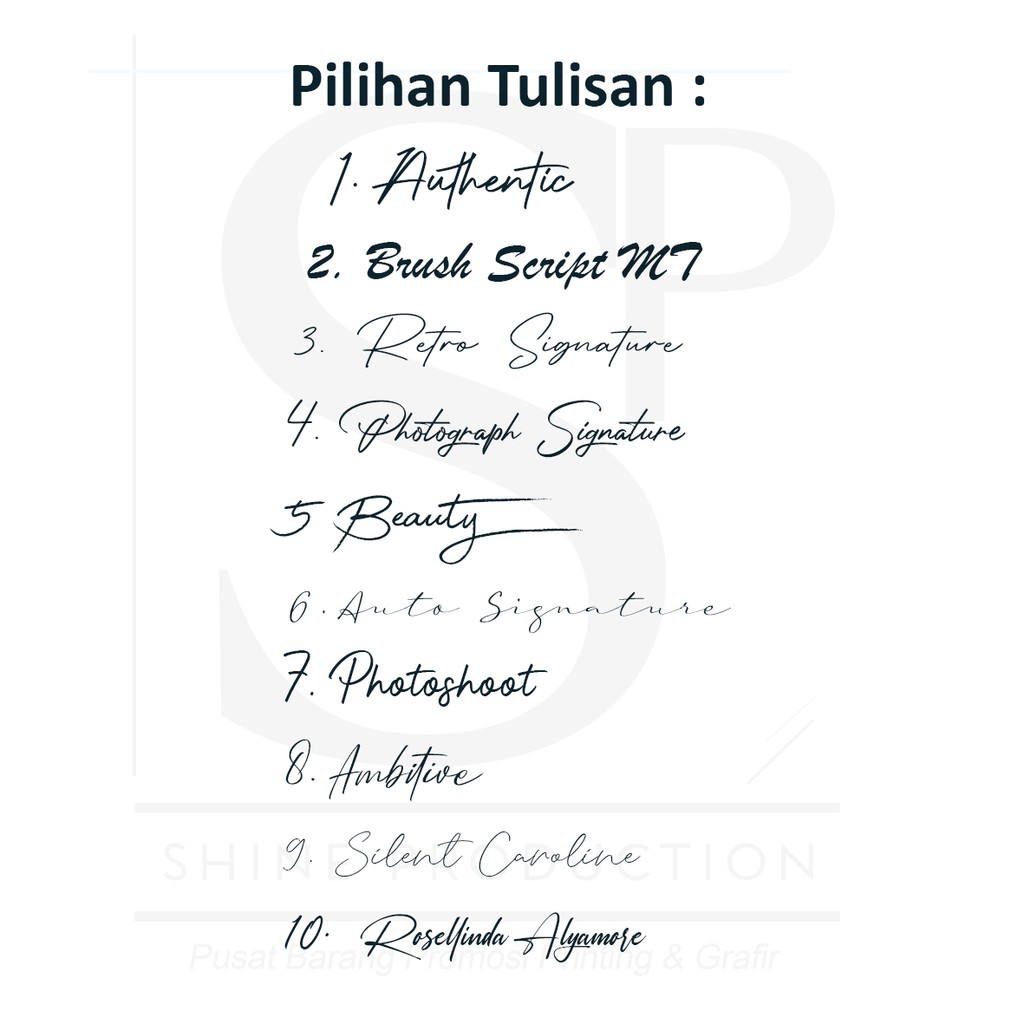 Pilihan Tulisan :
1. Authentic
2. Brush Script MT
3. Retro Signature
4. Photograph Signature
5 Beauty
6. Auto Signature
7. Photoshoot
8. Ambitive
9. Silent Caroline
SHINE PRODUCTION
10. Rosellinda Alyamore
Pusat Barang Promosi Printing & Grafir
SP